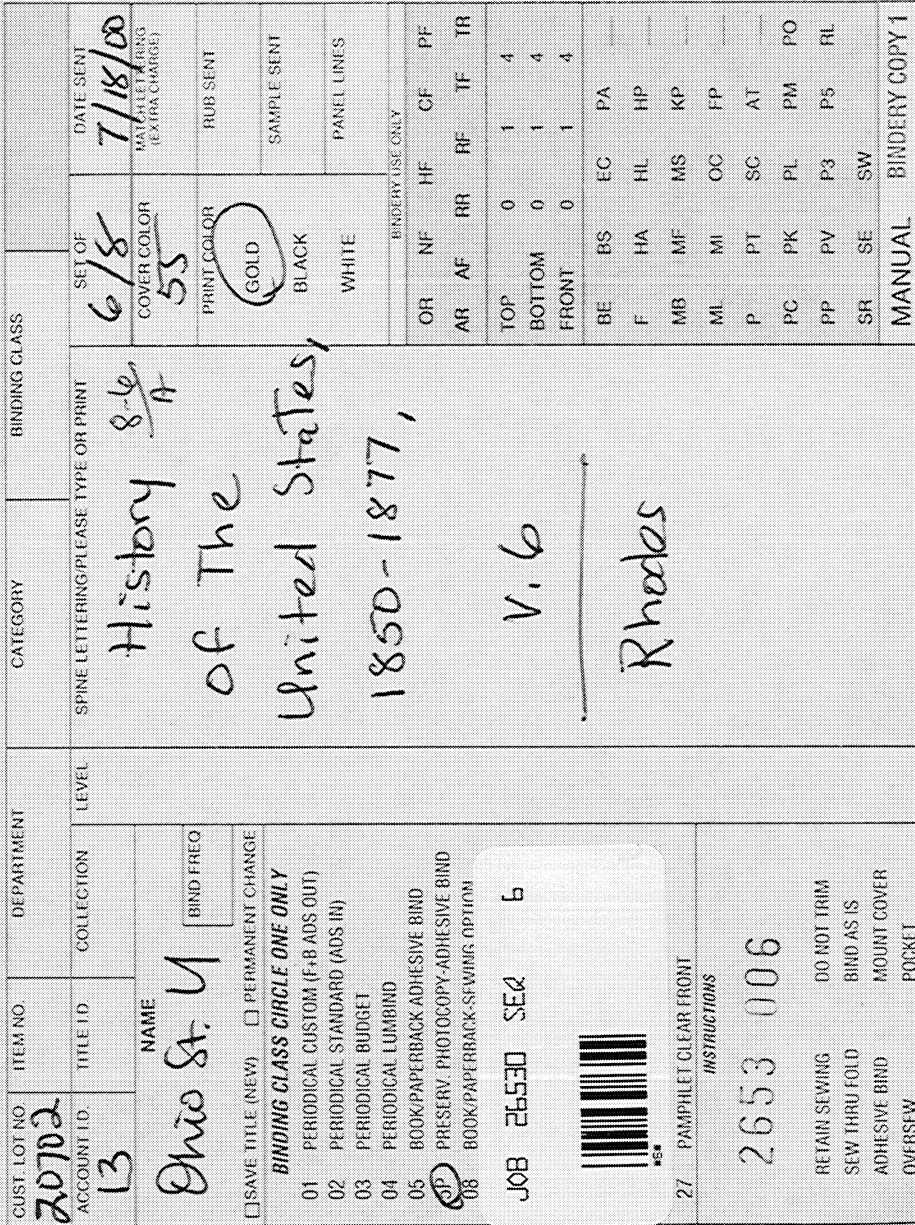 CUST. LOT NO.
20702
ITEM NO.
DEPARTMENT
CATEGORY
BINDING CLASS
ACCOUNT I.D.
13
TITLE I.D
COLLECTION
LEVEL
NAME
Ohio St. U
BIND FREQ
☐ SAVE TITLE (NEW) ☐ PERMANENT CHANGE
BINDING CLASS CIRCLE ONE ONLY
01 PERIODICAL CUSTOM (F+B ADS OUT)
02 PERIODICAL STANDARD (ADS IN)
03 PERIODICAL BUDGET
04 PERIODICAL LUMBIND
05 BOOK/PAPERBACK ADHESIVE BIND
PRESERV. PHOTOCOPY-ADHESIVE BIND
08 BOOK/PAPERBACK-SEWING OPTION
JOB 26530 SEQ 6
*6*
27 PAMPHLET CLEAR FRONT
INSTRUCTIONS
2653 006
RETAIN SEWING DO NOT TRIM
SEW THRU FOLD BIND AS IS
ADHESIVE BIND MOUNT COVER
OVERSEW POCKET
SPINE LETTERING/PLEASE TYPE OR PRINT
History 8-6/A
of The
United States,
1850-1877,
V. 6
Rhodes
SET OF
6/8
DATE SENT
7/18/00
COVER COLOR
55
MATCH LETTERING
(EXTRA CHARGE)
PRINT COLOR
GOLD
BLACK
WHITE
RUB SENT
SAMPLE SENT
PANEL LINES
BINDERY USE ONLY
OR NF HF CF PF
AR AF RR RF TF TR
TOP 0 1 4
BOTTOM 0 1 4
FRONT 0 1 4
BE BS EC PA
F HA HL HP
MB MF MS KP
ML MI OC FP
P PT SC AT
PC PK PL PM PO
PP PV P3 P5 RL
SR SE SW
MANUAL BINDERY COPY 1